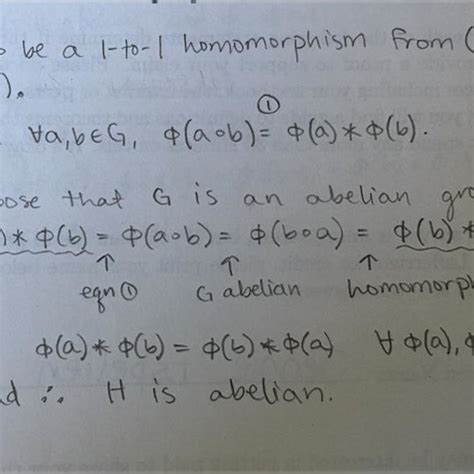 be a 1-to-1 homomorphism from (
).
①
∀a,b∈G, ϕ(a∘b) = ϕ(a) * ϕ(b).
oose that G is an abelian gro
) * ϕ(b) = ϕ(a∘b) = ϕ(b∘a) = ϕ(b) *
↑ ↑ ↑
eqn① G abelian homomorph
ϕ(a) * ϕ(b) = ϕ(b) * ϕ(a) ∀ ϕ(a), ϕ
d ∴ H is abelian.